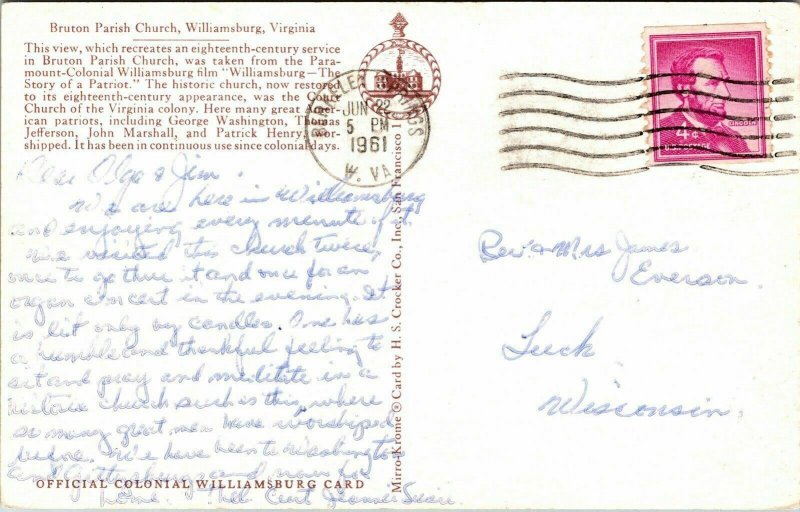 Bruton Parish Church, Williamsburg, Virginia
This view, which recreates an eighteenth-century service
in Bruton Parish Church, was taken from the Para-
mount-Colonial Williamsburg film "Williamsburg—The
Story of a Patriot." The historic church, now restored
to its eighteenth-century appearance, was the Court
Church of the Virginia colony. Here many great Amer-
ican patriots, including George Washington, Thomas
Jefferson, John Marshall, and Patrick Henry, wor-
shipped. It has been in continuous use since colonial days.
Dear Olga & Jim.
We are here in Williamsburg
and enjoying every minute of it.
We visited this church twice,
once to go thru it and once for an
organ concert in the evening. It
is lit only by candles. One has
a humble and thankful feeling to
sit and pray and meditate in a
historic church such as this, where
so many great men have worshiped
before. We have been to Washington
and Gettysburg and now for
home.
OFFICIAL COLONIAL WILLIAMSBURG CARD
Mirro-Krome ® Card by H. S. Crocker Co., Inc., San Francisco 1
SPRINGS
JUN 22
5 PM
1961
W. VA.
LINCOLN
4¢
U.S. POSTAGE
Rev. & Mrs James
Everson.
Luck
Wisconsin.